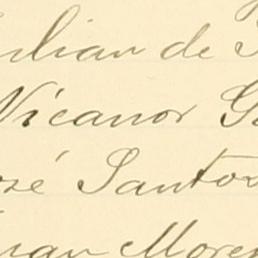 ulian de
Nicanor
osé Santos
uan More